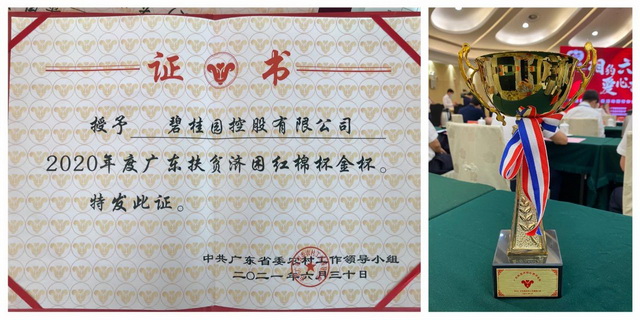 证 书
授予 碧桂园控股有限公司
2020年度广东扶贫济困红棉杯金杯。
特发此证。
中共广东省委农村工作领导小组
二〇二一年六月三十日
相约六
爱心